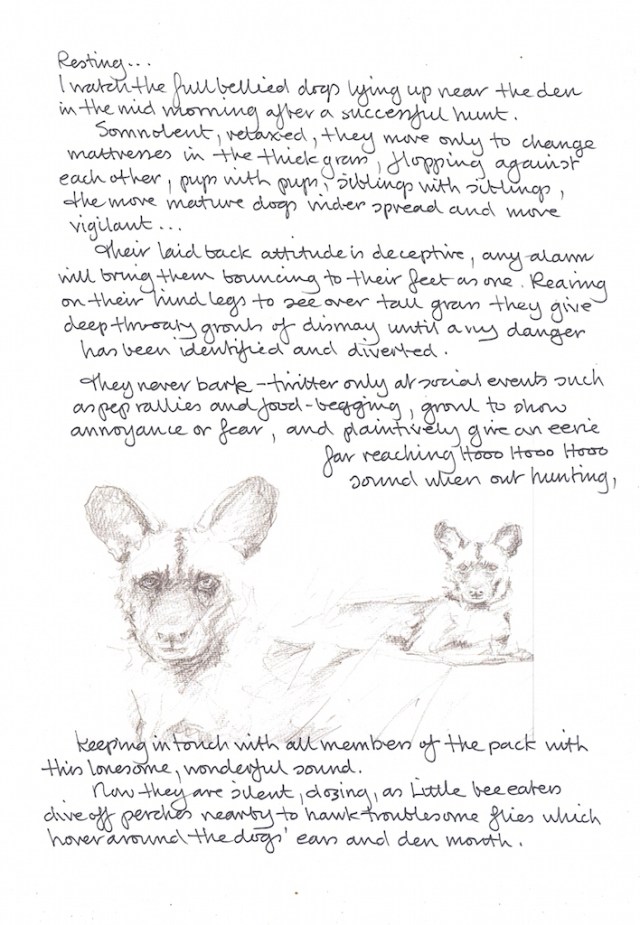 Resting...
I watch the full bellied dogs lying up near the den
in the mid morning after a successful hunt.
Somnolent, relaxed, they move only to change
mattresses in the thick grass, flopping against
each other, pups with pups, siblings with siblings,
the more mature dogs wider spread and more
vigilant...
Their laid back attitude is deceptive, any alarm
will bring them bouncing to their feet as one. Rearing
on their hind legs to see over tall grass they give
deep throaty growls of dismay until any danger
has been identified and diverted.
They never bark - twitter only at social events such
as pep rallies and food-begging, growl to show
annoyance or fear, and plaintively give an eerie
far reaching Hooo Hooo Hooo
sound when out hunting,
keeping in touch with all members of the pack with
this lonesome, wonderful sound.
Now they are silent, dozing, as Little bee eaters
dive off perches nearby to hawk troublesome flies which
hover around the dogs' ears and den mouth.